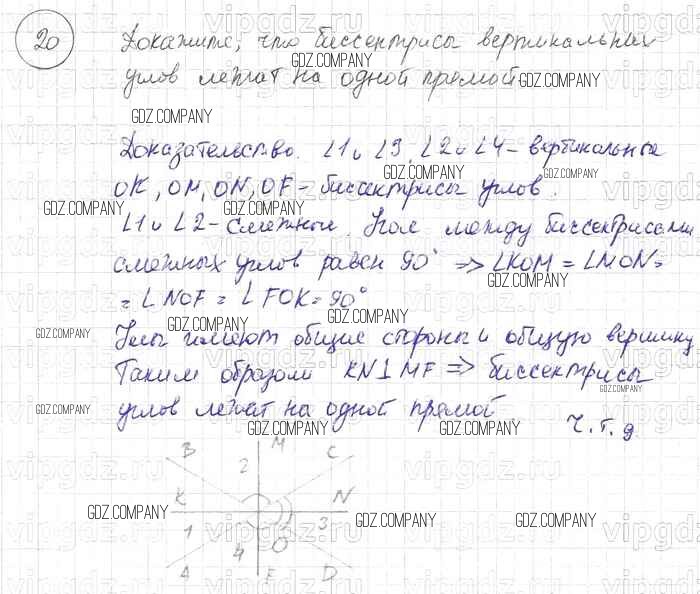 20
Докажите, что биссектрисы вертикальных
углов лежат на одной прямой
Доказательство. ∠1 и ∠3, ∠2 и ∠4 - вертикальные
OK, OM, ON, OF - биссектрисы углов.
∠1 и ∠2 - смежные. Угол между биссектрисами
смежных углов равен 90° => ∠KOM = ∠MON =
= ∠NOF = ∠FOK = 90°
Углы имеют общие стороны и общую вершину
Таким образом KN⊥MF => биссектрисы
углов лежат на одной прямой
ч.т.д.
B M C
2
K N
1 3
4 O
A F D
GDZ.COMPANY
vipgdz.ru